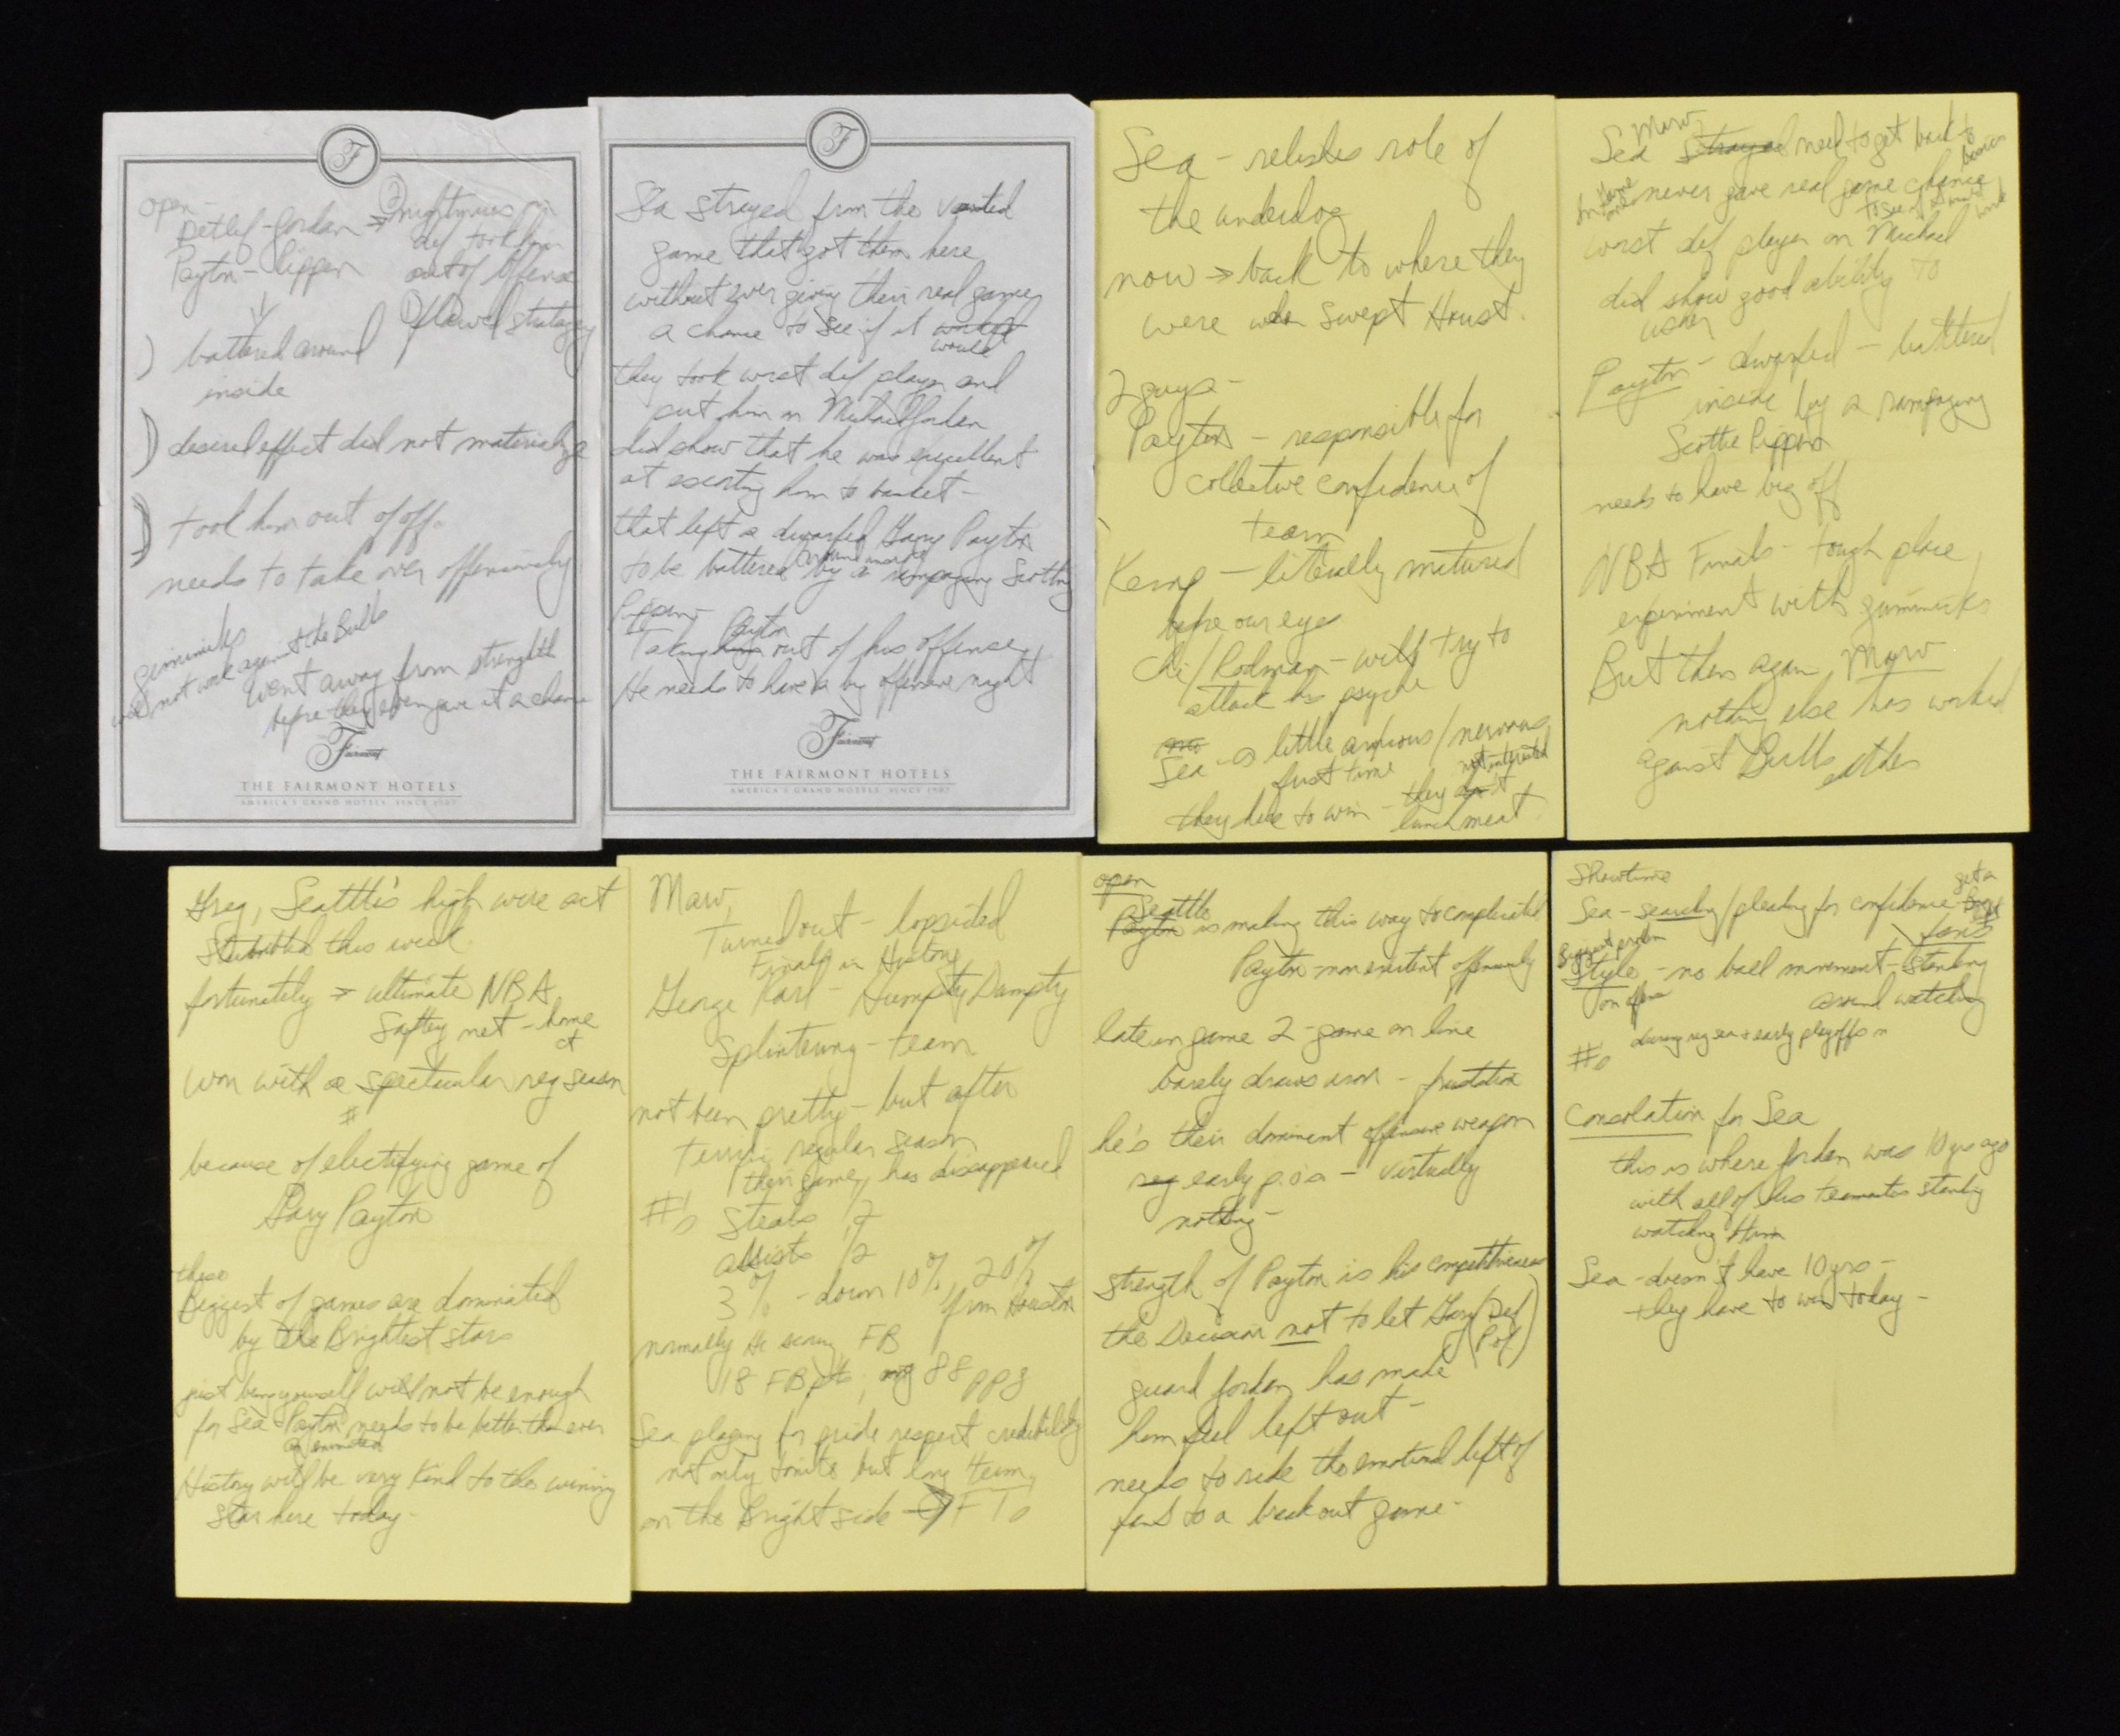 F
open -
Detlef - Jordan → ② nightmares on
def took him
Payton - Pippen out of offense
① flawed stratagey
) battered around
inside
)) desired effect did not materialize
))) took him out of off.
needs to take over offensively
gimmicks
will not work against the Bulls
went away from strength
before they even gave it a chance
Fairmont
THE FAIRMONT HOTELS
AMERICA'S GRAND HOTELS. SINCE 1907
F
Sea strayed from the vaunted
game that got them here
without ever giving their real game
a chance to see if it would
would
they took worst def player and
put him on Michael Jordan
did show that he was excellent
at escorting him to basket -
that left a dwarfed Gary Payton
to be battered around inside by a rampaging Scotty
Pippen -
Taking Payton out of his offense
He needs to have a big offensive night
Fairmont
THE FAIRMONT HOTELS
AMERICA'S GRAND HOTELS. SINCE 1907
Sea - relishes role of
the underdog
now → back to where they
were when swept Houst.
2 guys -
Payton - responsible for
collective confidence of
team
Kemp - literally matured
before our eyes
Chi / Rodman - will try to
attack his psyche
Sea - a little anxious / nervous
first time not interested
they like to win - they don't
lunch meat
Marv,
Sea strayed need to get back to
basics
never gave real game chance
to see if it would work
worst def player on Michael
did show good ability to
usher
Payton - dwarfed - battered
inside by a rampaging
Scottie Pippen
needs to have big off
NBA Finals - tough place
experiment with gimmicks
But then again Marv
nothing else has worked
against Bulls either
Greg, Seattle's high wire act
stumbled this week
fortunately → ultimate NBA
saftey net - home
ct
won with a spectacular reg season
#
because of electifying game of
Gary Payton
these
Biggest of games are dominated
by the Brightest stars
just being yourself will not be enough
for Sea & Payton needs to be better than ever
History will be very kind to the winning
star here today -
Marv,
Turned out - lopsided
Finals in History
George Karl - Humpty Dumpty
splintering - team
not been pretty - but after
terrific regular season
their game has disappeared
#'s steals 1/2
assists 1/2
3 % - down 10%, 20%
from Houston
normally hi scoring FB
18 FB pts, avg 88 ppg
Sea playing for pride respect credibility
not only tonite but long term
on the Bright side → FTs
open
Seattle
Payton is making this way to complicated
Payton - nonexistent offensively
late in game 2 - game on line
barely draws iron - frustration
he's their dominent offensive weapon
reg early p.o.s - virtually
nothing -
strength of Payton is his competitiveness
the Decision not to let Gary (Def
P of)
guard Jordan has made
him feel left out -
needs to ride the emotional lift of
fans to a breakout game -
Showtime
get a
Sea - searching / pleading for confidence Boost
fans
Biggest problem
Style - no ball movement - standing
on offense around watching
#'s during reg sea & early playoffs
Consolation for Sea
this is where Jordan was 10 yrs ago
with all of his teammates standing
watching Him
Sea - doesn't have 10 yrs -
they have to win today -